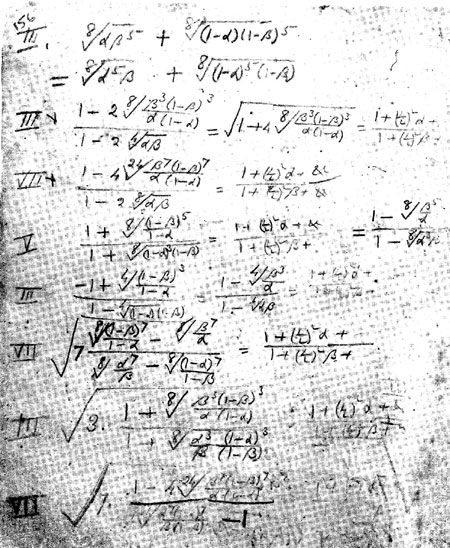 56
III. ⁸√αβ⁵ + ⁸√(1-α)(1-β)⁵
= ⁸√α⁵β + ⁸√(1-α)⁵(1-β)
III (1 - 2 ⁸√(β³(1-β)³/α(1-α))) / (1 - 2 ⁴√αβ) = √(1+4 ⁸√(β³(1-β)³/α(1-α))) = (1+(½)²α+) / (1+(½)²β+)
VII (1 - 4 ²⁴√(β⁷(1-β)⁷/α(1-α))) / (1 - 2 ⁸√αβ) = (1+(½)²α+&c) / (1+(½)²β+&c)
V (1 + ⁸√((1-β)⁵/(1-α))) / (1 + ⁸√((1-α)³(1-β))) = (1+(½)²α+&c) / (1+(½)²β+) = (1 - ⁸√(β⁵/α)) / (1 - ⁸√α³β)
III (-1 + ⁴√((1-β)³/(1-α))) / (1 - ⁴√((1-α)(1-β))) = (1 - ⁴√(β³/α)) / (1 - ⁴√αβ) = (1+(½)²α+)
VII √(7 (⁸√((1-β)⁷/(1-α)) - ⁸√(β⁷/α)) / (⁸√(α⁷/β) - ⁸√((1-α)⁷/(1-β)))) = (1+(½)²α+) / (1+(½)²β+)
III √(3. (1 + ⁸√(β³(1-β)³/α(1-α))) / (1 + ⁸√(α³(1-α)³/β(1-β)))) = (1+(½)²α+) / (β+)
VII √ 1 - 4 ²⁴√ -1